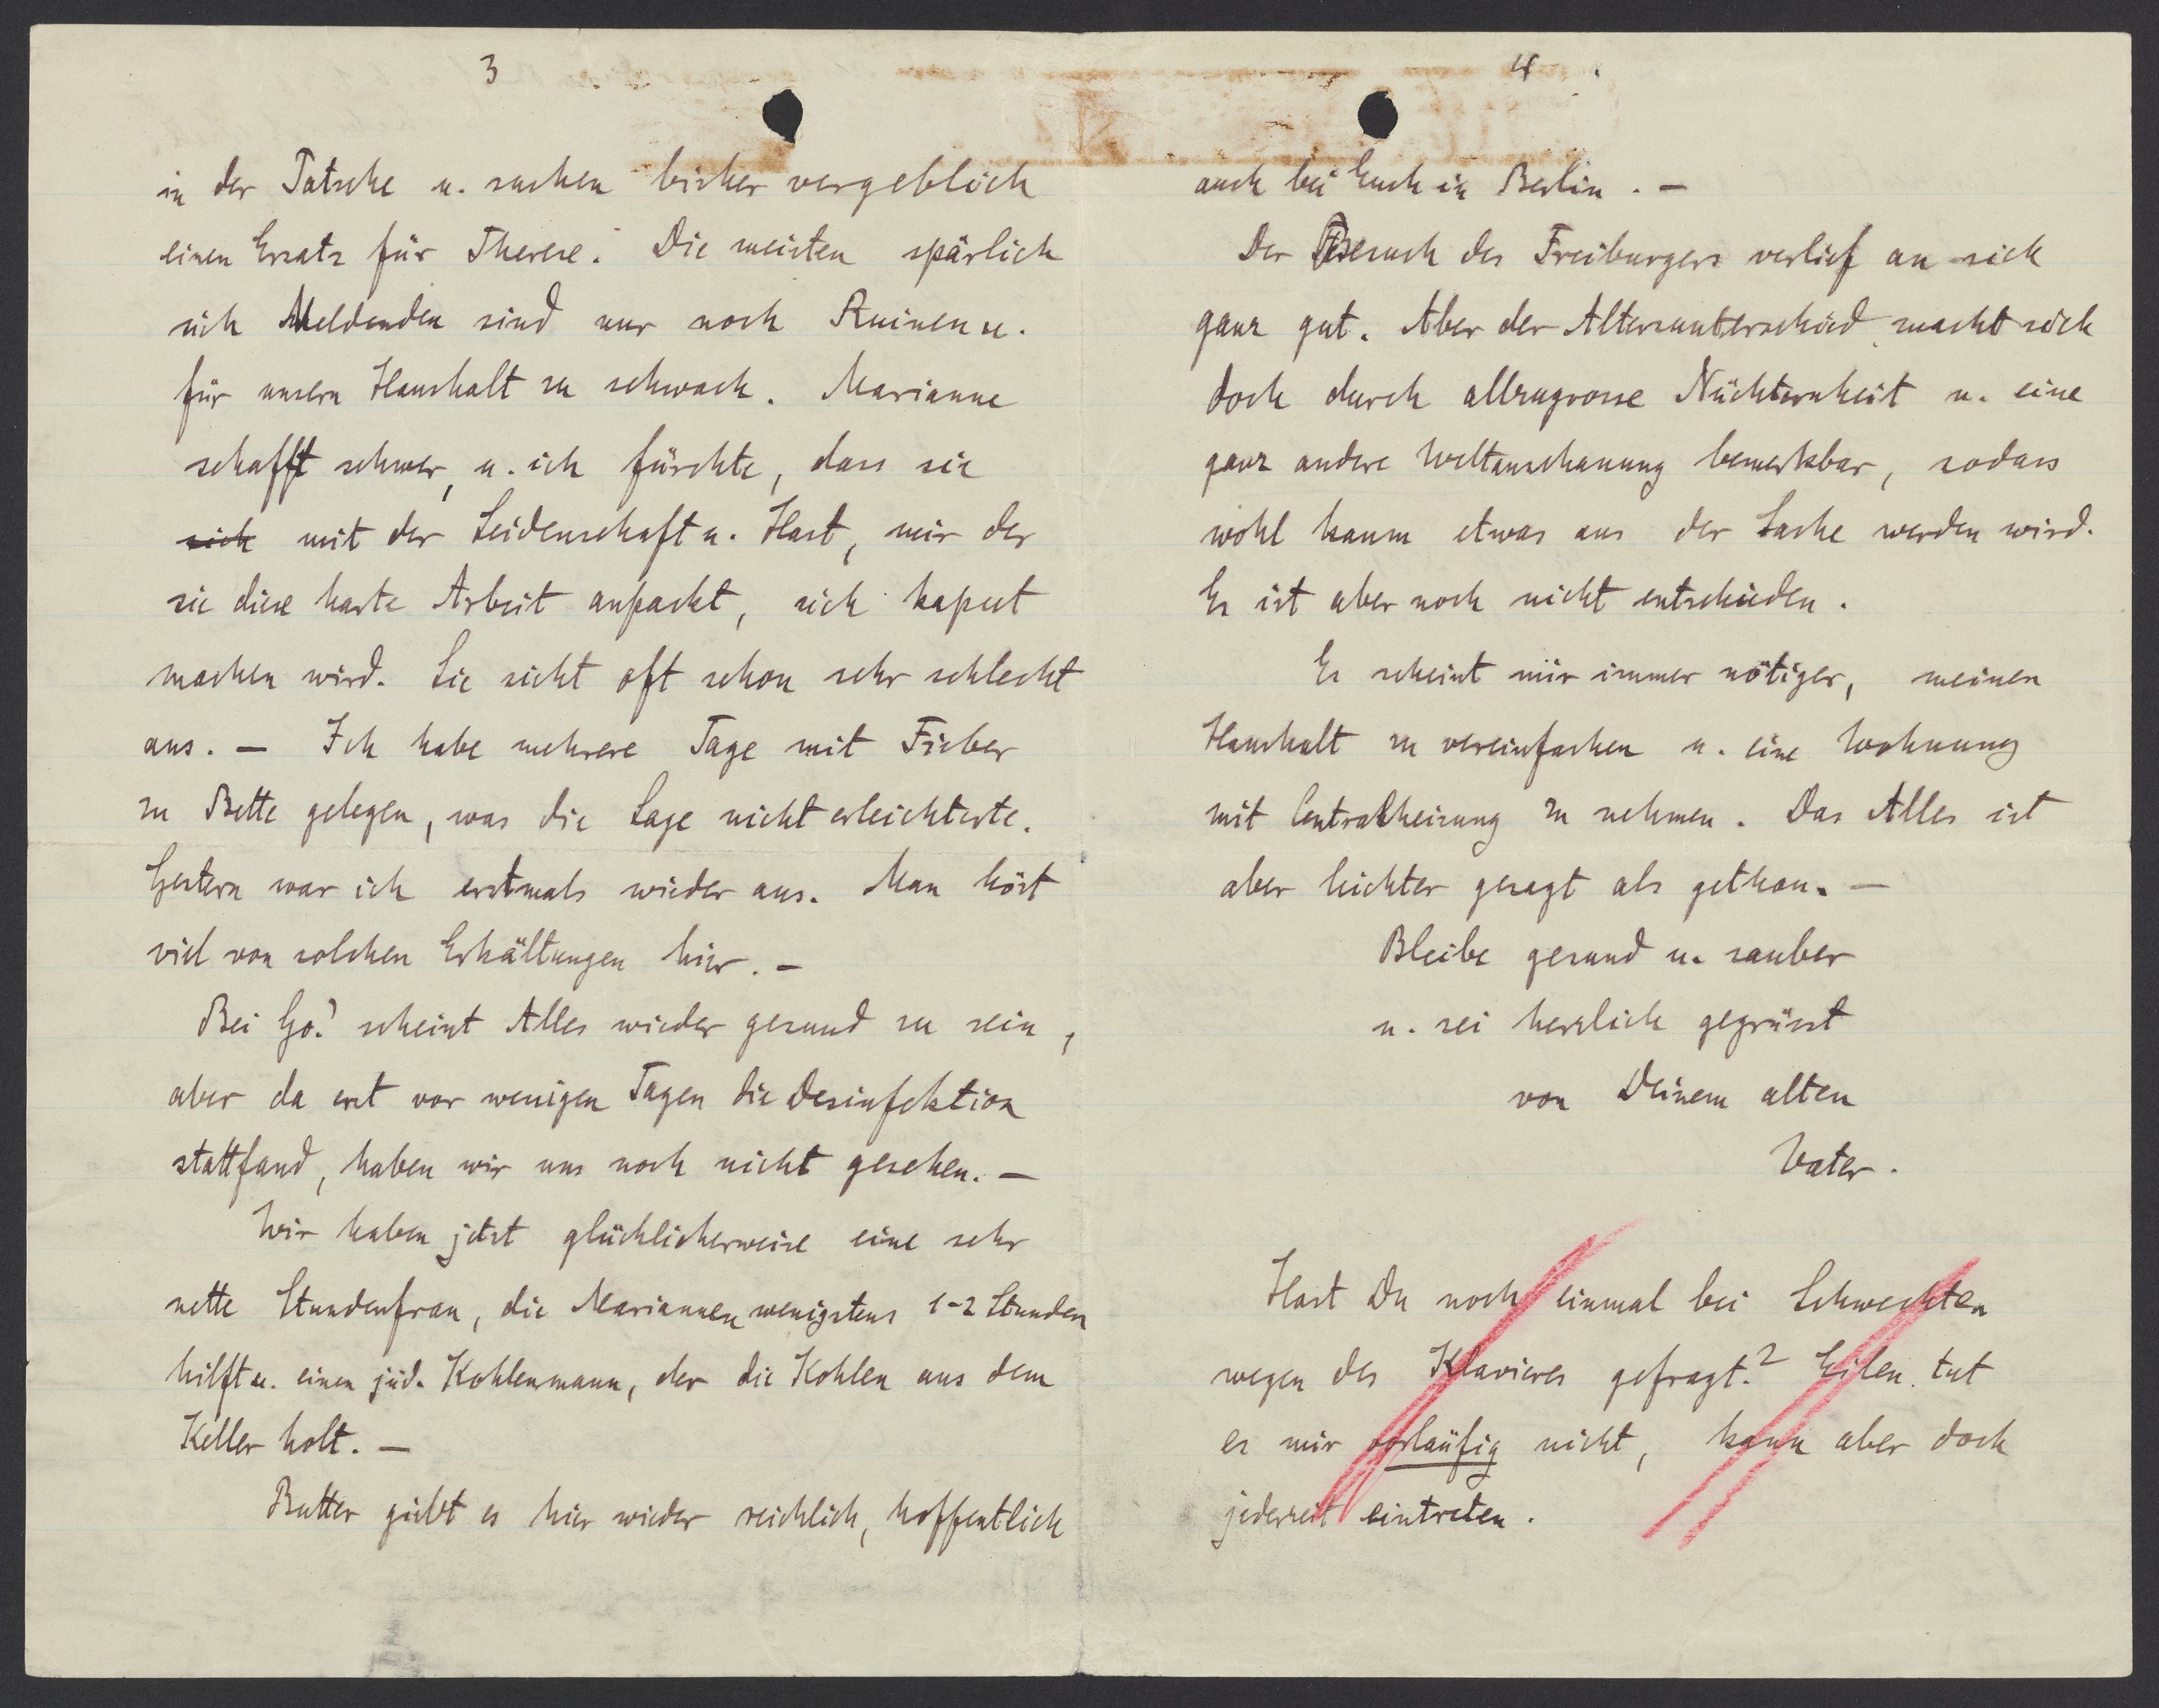 3
in der Patsche u. suchen bisher vergeblich
einen Ersatz für Therese. Die meisten spärlich
sich Meldenden sind nur noch Ruinen u.
für unsern Haushalt zu schwach. Marianne
schafft schwer, u. ich fürchte, dass sie
sich mit der Leidenschaft u. Hast, mir der
sie diese harte Arbeit anpackt, sich kaput
machen wird. Sie sieht oft schon sehr schlecht
aus. — Ich habe mehrere Tage mit Fieber
zu Bette gelegen, was die Lage nicht erleichterte.
Gestern war ich erstmals wieder aus. Man hört
viel von solchen Erkältungen hier. —
Bei Go.' scheint Alles wieder gesund zu sein,
aber da erst vor wenigen Tagen die Desinfektion
stattfand, haben wir uns noch nicht gesehen. —
Wir haben jetzt glücklicherweise eine sehr
nette Stundenfrau, die Mariannen wenigstens 1-2 Stunden
hilft u. einen jüd. Kohlenmann, der die Kohlen aus dem
Keller holt. —
Butter giebt es hier wieder reichlich, hoffentlich
4
auch bei Euch in Berlin. —
Der Besuch des Freiburgers verlief an sich
ganz gut. Aber der Altersunterschied macht sich
doch durch allzugrosse Nüchternheit u. eine
ganz andere Weltanschauung bemerkbar, sodass
wohl kaum etwas aus der Sache werden wird.
Es ist aber noch nicht entschieden.
Es scheint mir immer nötiger, meinen
Haushalt zu vereinfachen u. eine Wohnung
mit Centralheizung zu nehmen. Das Alles ist
aber leichter gesagt als gethan. —
Bleibe gesund u. sauber
u. sei herzlich gegrüsst
von Deinem alten
Vater.
Hast Du noch einmal bei Schwechten
wegen des Klavieres gefragt? Eilen tut
es mir vorläufig nicht, kann aber doch
jederzeit eintreten.